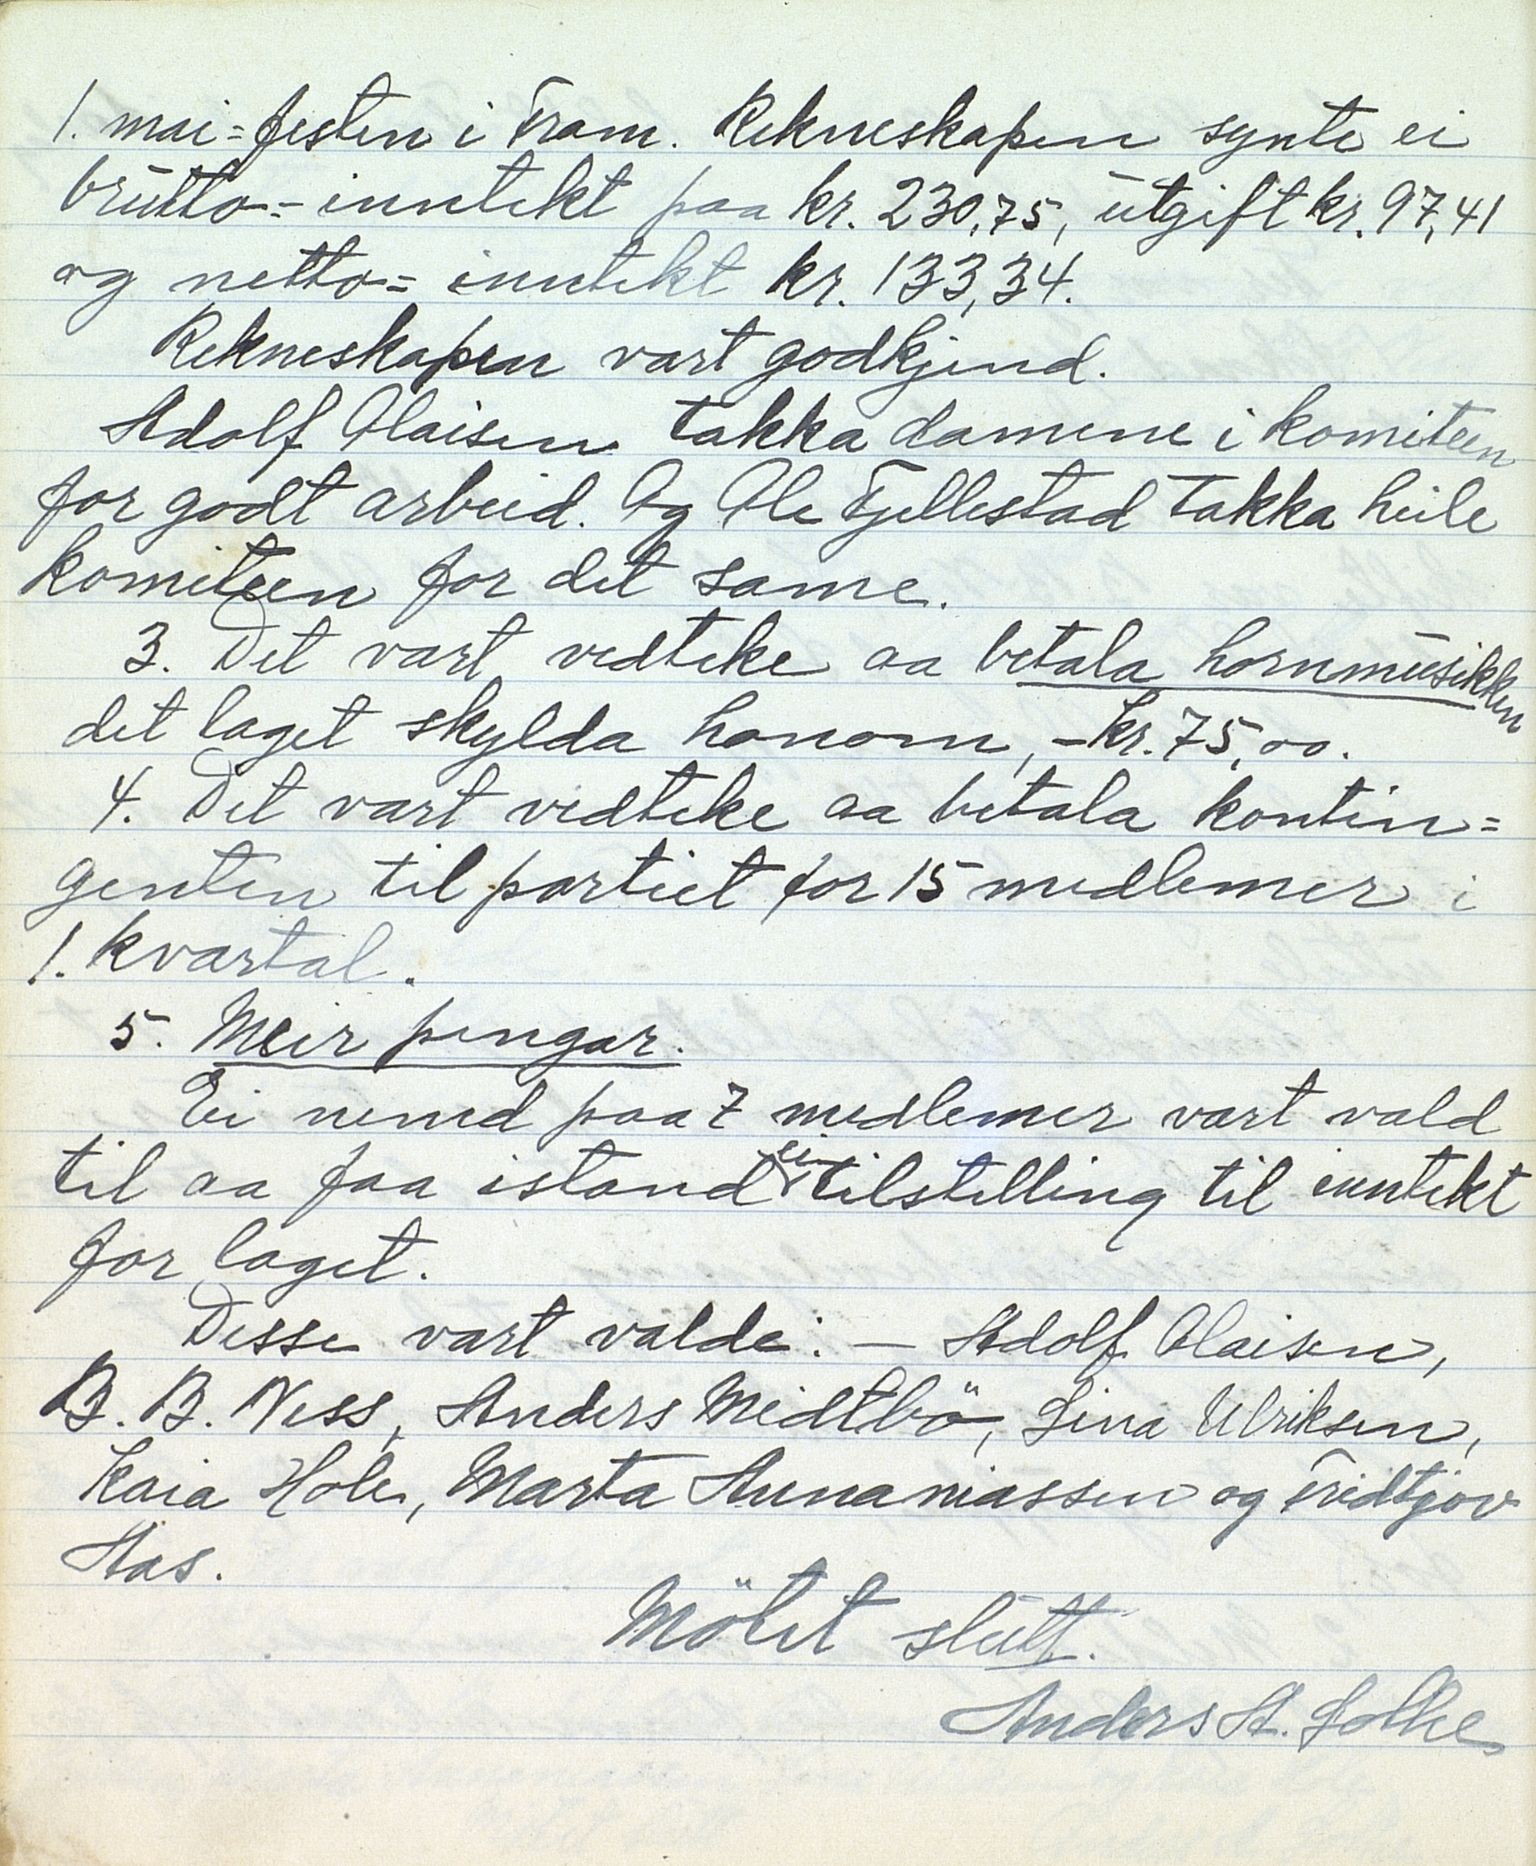 1. mai=festen i Fram. Rekneskapen synte ei
brutto=inntekt paa kr. 230,75, utgift kr. 97,41
og netto=inntekt kr. 133,34.
Rekneskapen vart godkjend.
Adolf Olaisen takka damene i komiteen
for godt arbeid. Og Ole Fjellestad takka heile
komiteen for det same.
3. Det vart vedteke aa betala hornmusikken
det laget skylda honom, – kr. 75,00.
4. Det vart vedteke aa betala kontin=
genten til partiet for 15 medlemer i
1. kvartal.
5. Meir pengar.
Ei nemd paa 7 medlemer vart vald
til aa faa istand ei tilstelling til inntekt
for laget.
Desse vart valde: – Adolf Olaisen,
B. B. Ness, Anders Midtbö, Lina Ulriksen,
Kaia Hole, Marta Annaniassen og Fridtjov
Aas.
Mötet slutt.
Anders A. Solhe